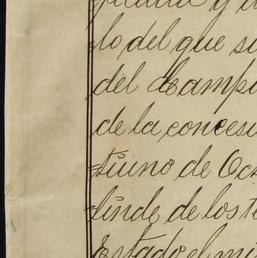 y
lo del que su
del Campo
de la conces
tiuno de Oct
linde de los te
Estado el mi